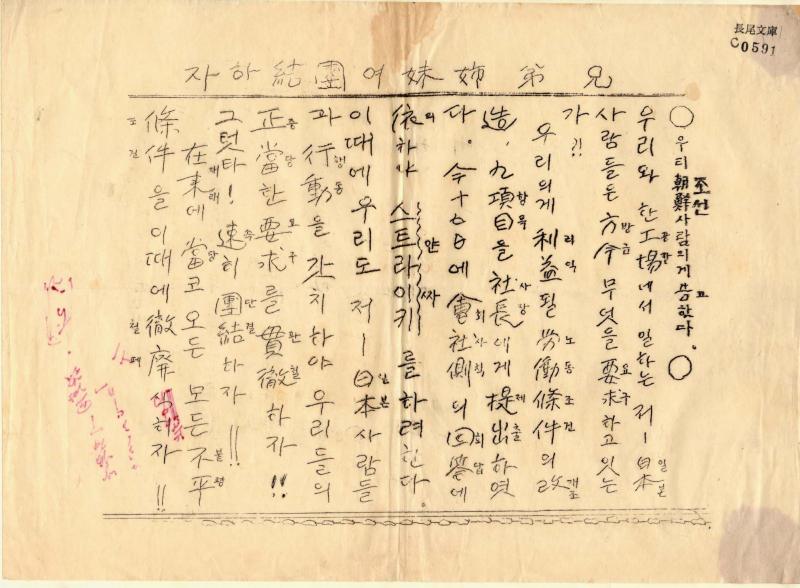 長尾文庫
C0591
兄弟姉妹여 團結하자
○ 우리 朝鮮사람의게 告한다. ○
우리와 한 工場네서 일하는 저ㅣ日本
사람들든 方今 무엇을 要求하고 잇는
가?!
우리의게 利益될 勞働條件의 改
造, 九項目을 社長에게 提出하엿
다. 今十日에 會社側의 回答에
依하야 스트라이키를 하려한다.
이때에 우리도 저ㅣ日本사람들
과 行動을 갓치하야 우리들의
正當한 要求를 貫徹하자!!
그럿타! 速히 團結하자!!
在來에 當코 오든 모든 不平
條件을 이때에 徹廃식히자!!